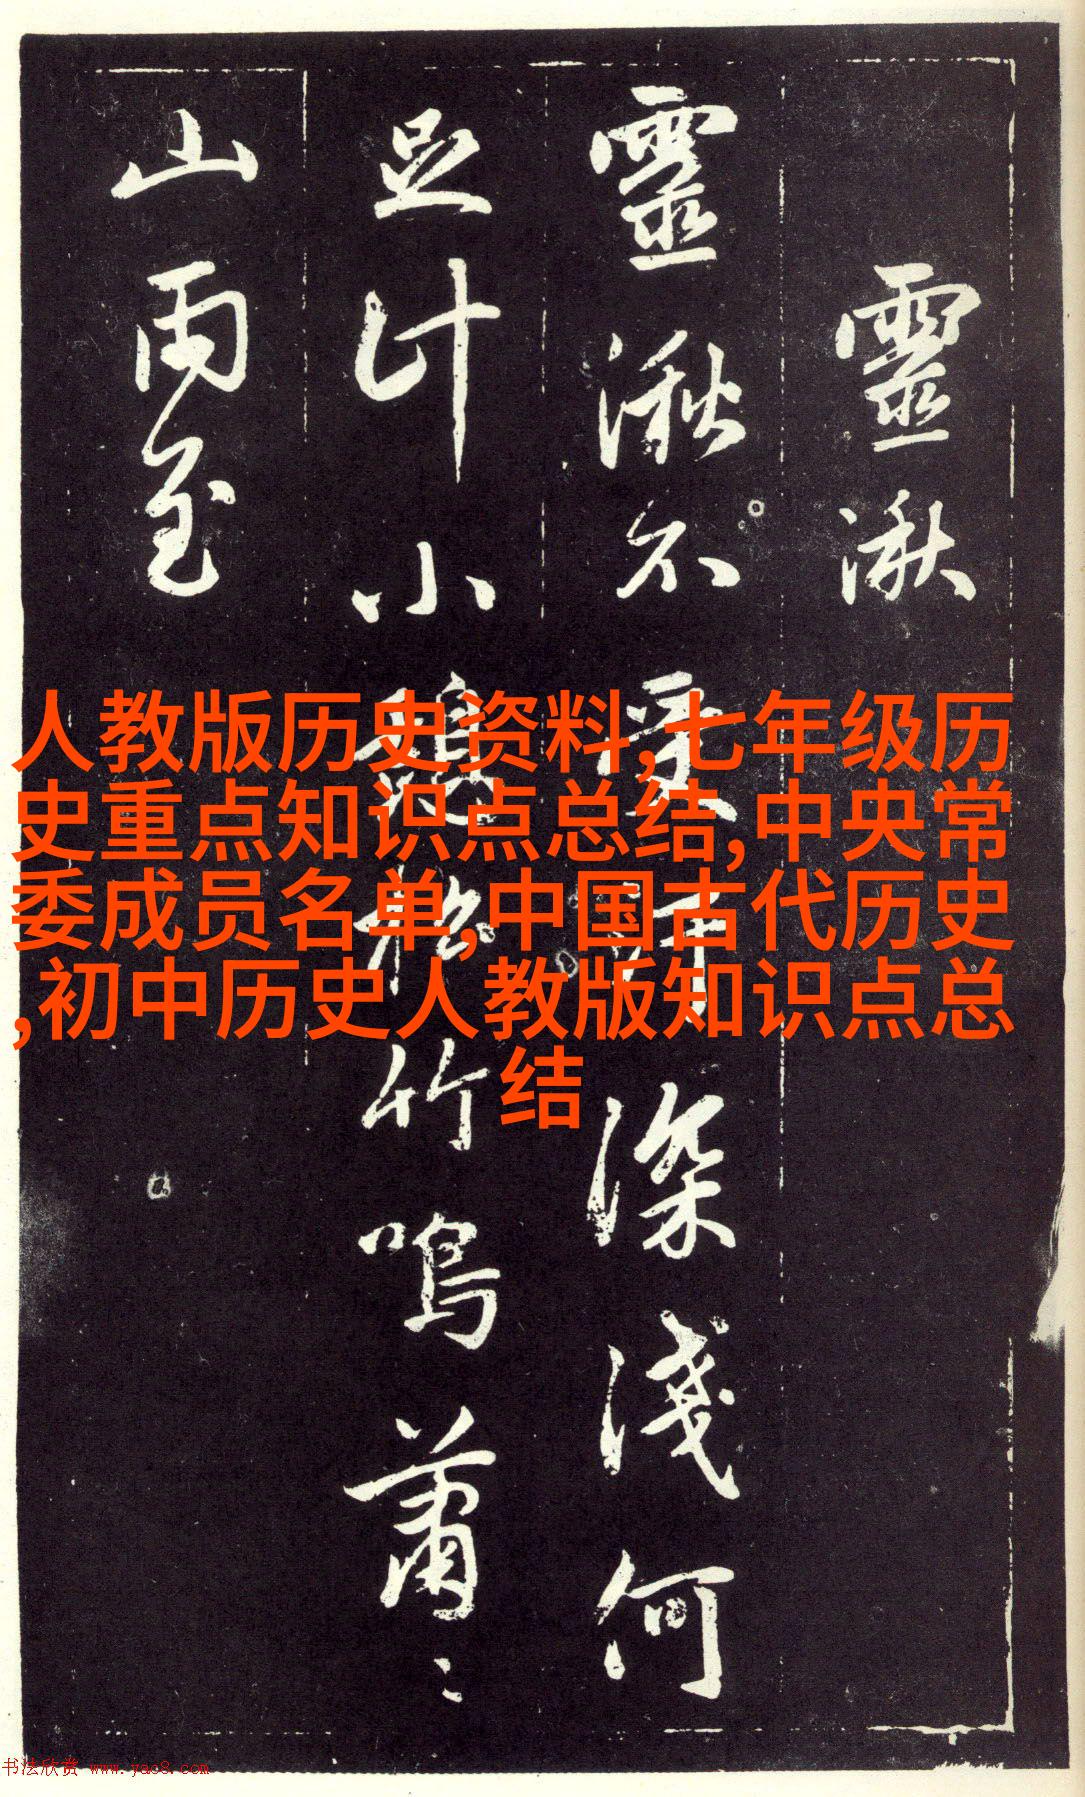 靈湫
靈湫不深淺何
足計小松竹鳴蕭〻
山雨至
人教版历史资料,七年级历
史重点知识点总结,中央常
委成员名单,中国古代历史
,初中历史人教版知识点总
结
书法欣赏 www.yac8.com